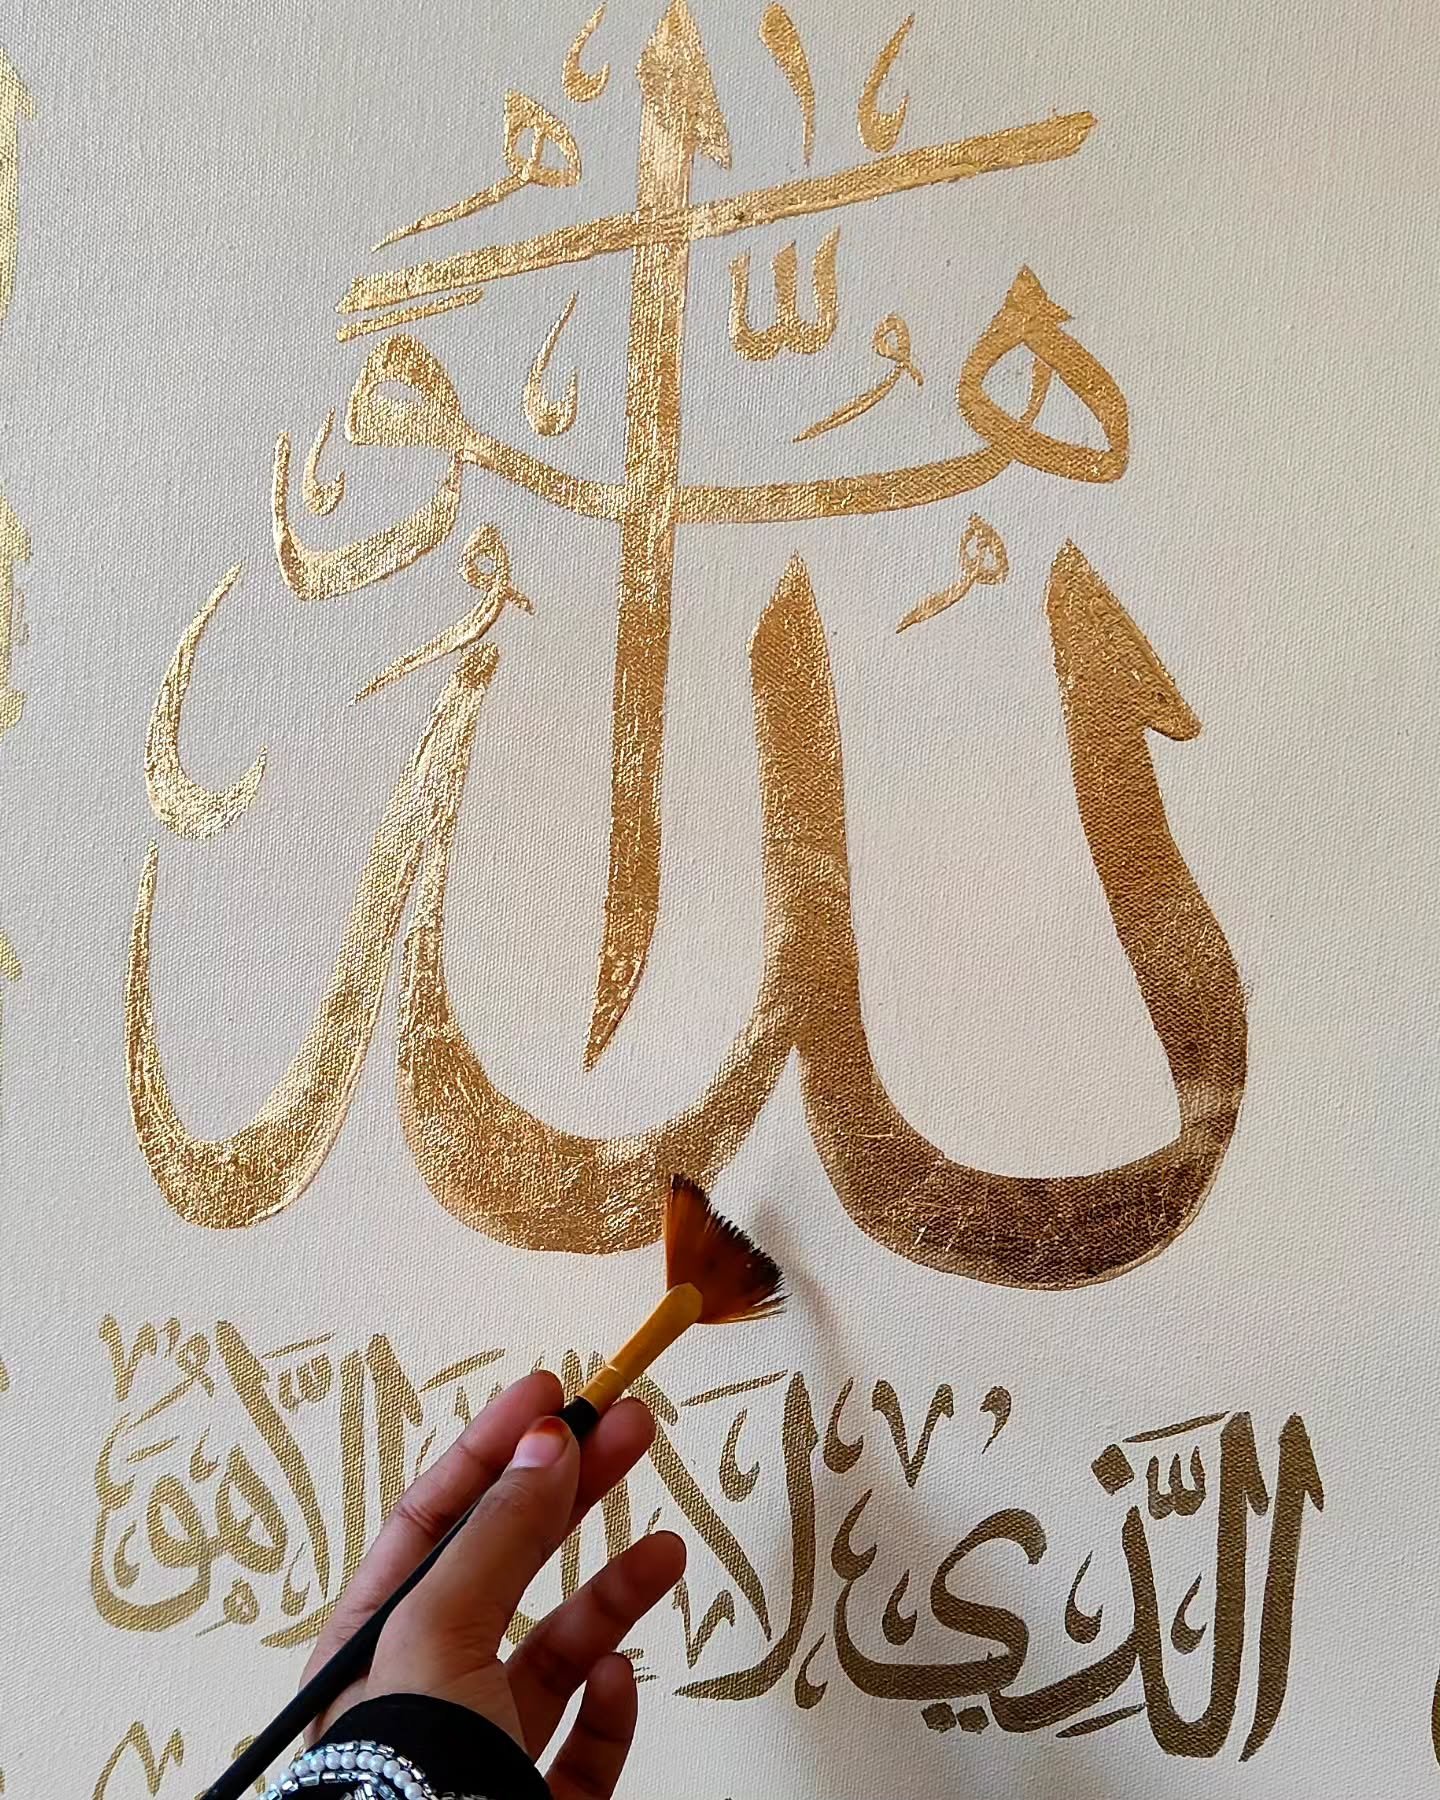 هُوَ اللَّهُ
الَّذِي لَا إِلَّا هُوَ